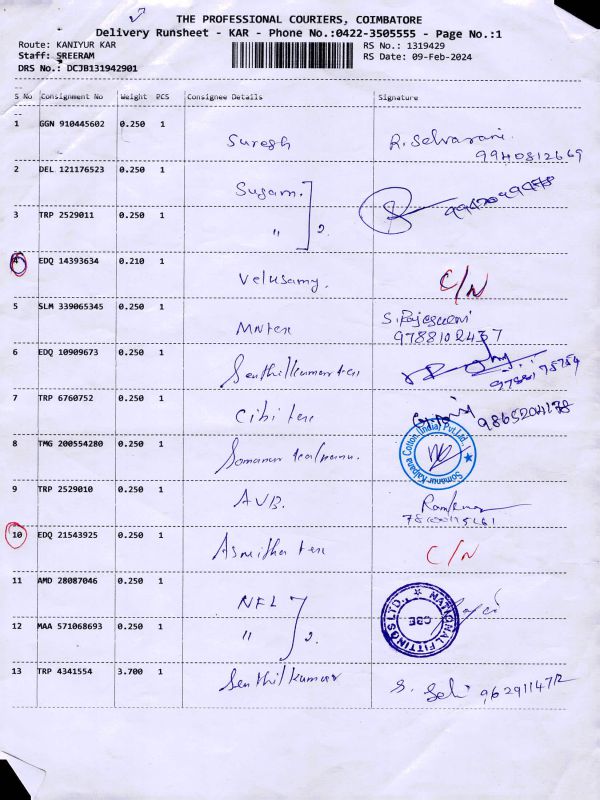 THE PROFESSIONAL COURIERS, COIMBATORE
Delivery Runsheet - KAR - Phone No.:0422-3505555 - Page No.:1
Route: KANIYUR KAR RS No.: 1319429
Staff: SREERAM RS Date: 09-Feb-2024
DRS No.: DCJB131942901
S No Consignment No Weight PCS Consignee Details Signature
1 GGN 910445602 0.250 1 Suresh R. Selvarani.
9940812669
2 DEL 121176523 0.250 1 Sugam.
3 TRP 2529011 0.250 1 " 2.
4 EDQ 14393634 0.210 1 Velusamy. C/N
5 SLM 339065345 0.250 1 MNtex S. Rajeswari
9788102437
6 EDQ 10909673 0.250 1 Senthilkumar tex
9788175754
7 TRP 6760752 0.250 1 Cibi tex 9865204178
8 TMG 200554280 0.250 1 Somanur kalpana. Somanur Kalpana Cotton (India) Pvt. Ltd.
9 TRP 2529010 0.250 1 AVB.
10 EDQ 21543925 0.250 1 Asmitha tex C/N
11 AMD 28087046 0.250 1 NFL NATIONAL FITTINGS LTD., CBE
12 MAA 571068693 0.250 1 " 2.
13 TRP 4341554 3.700 1 Senthilkumar S. Selvi 9629114712